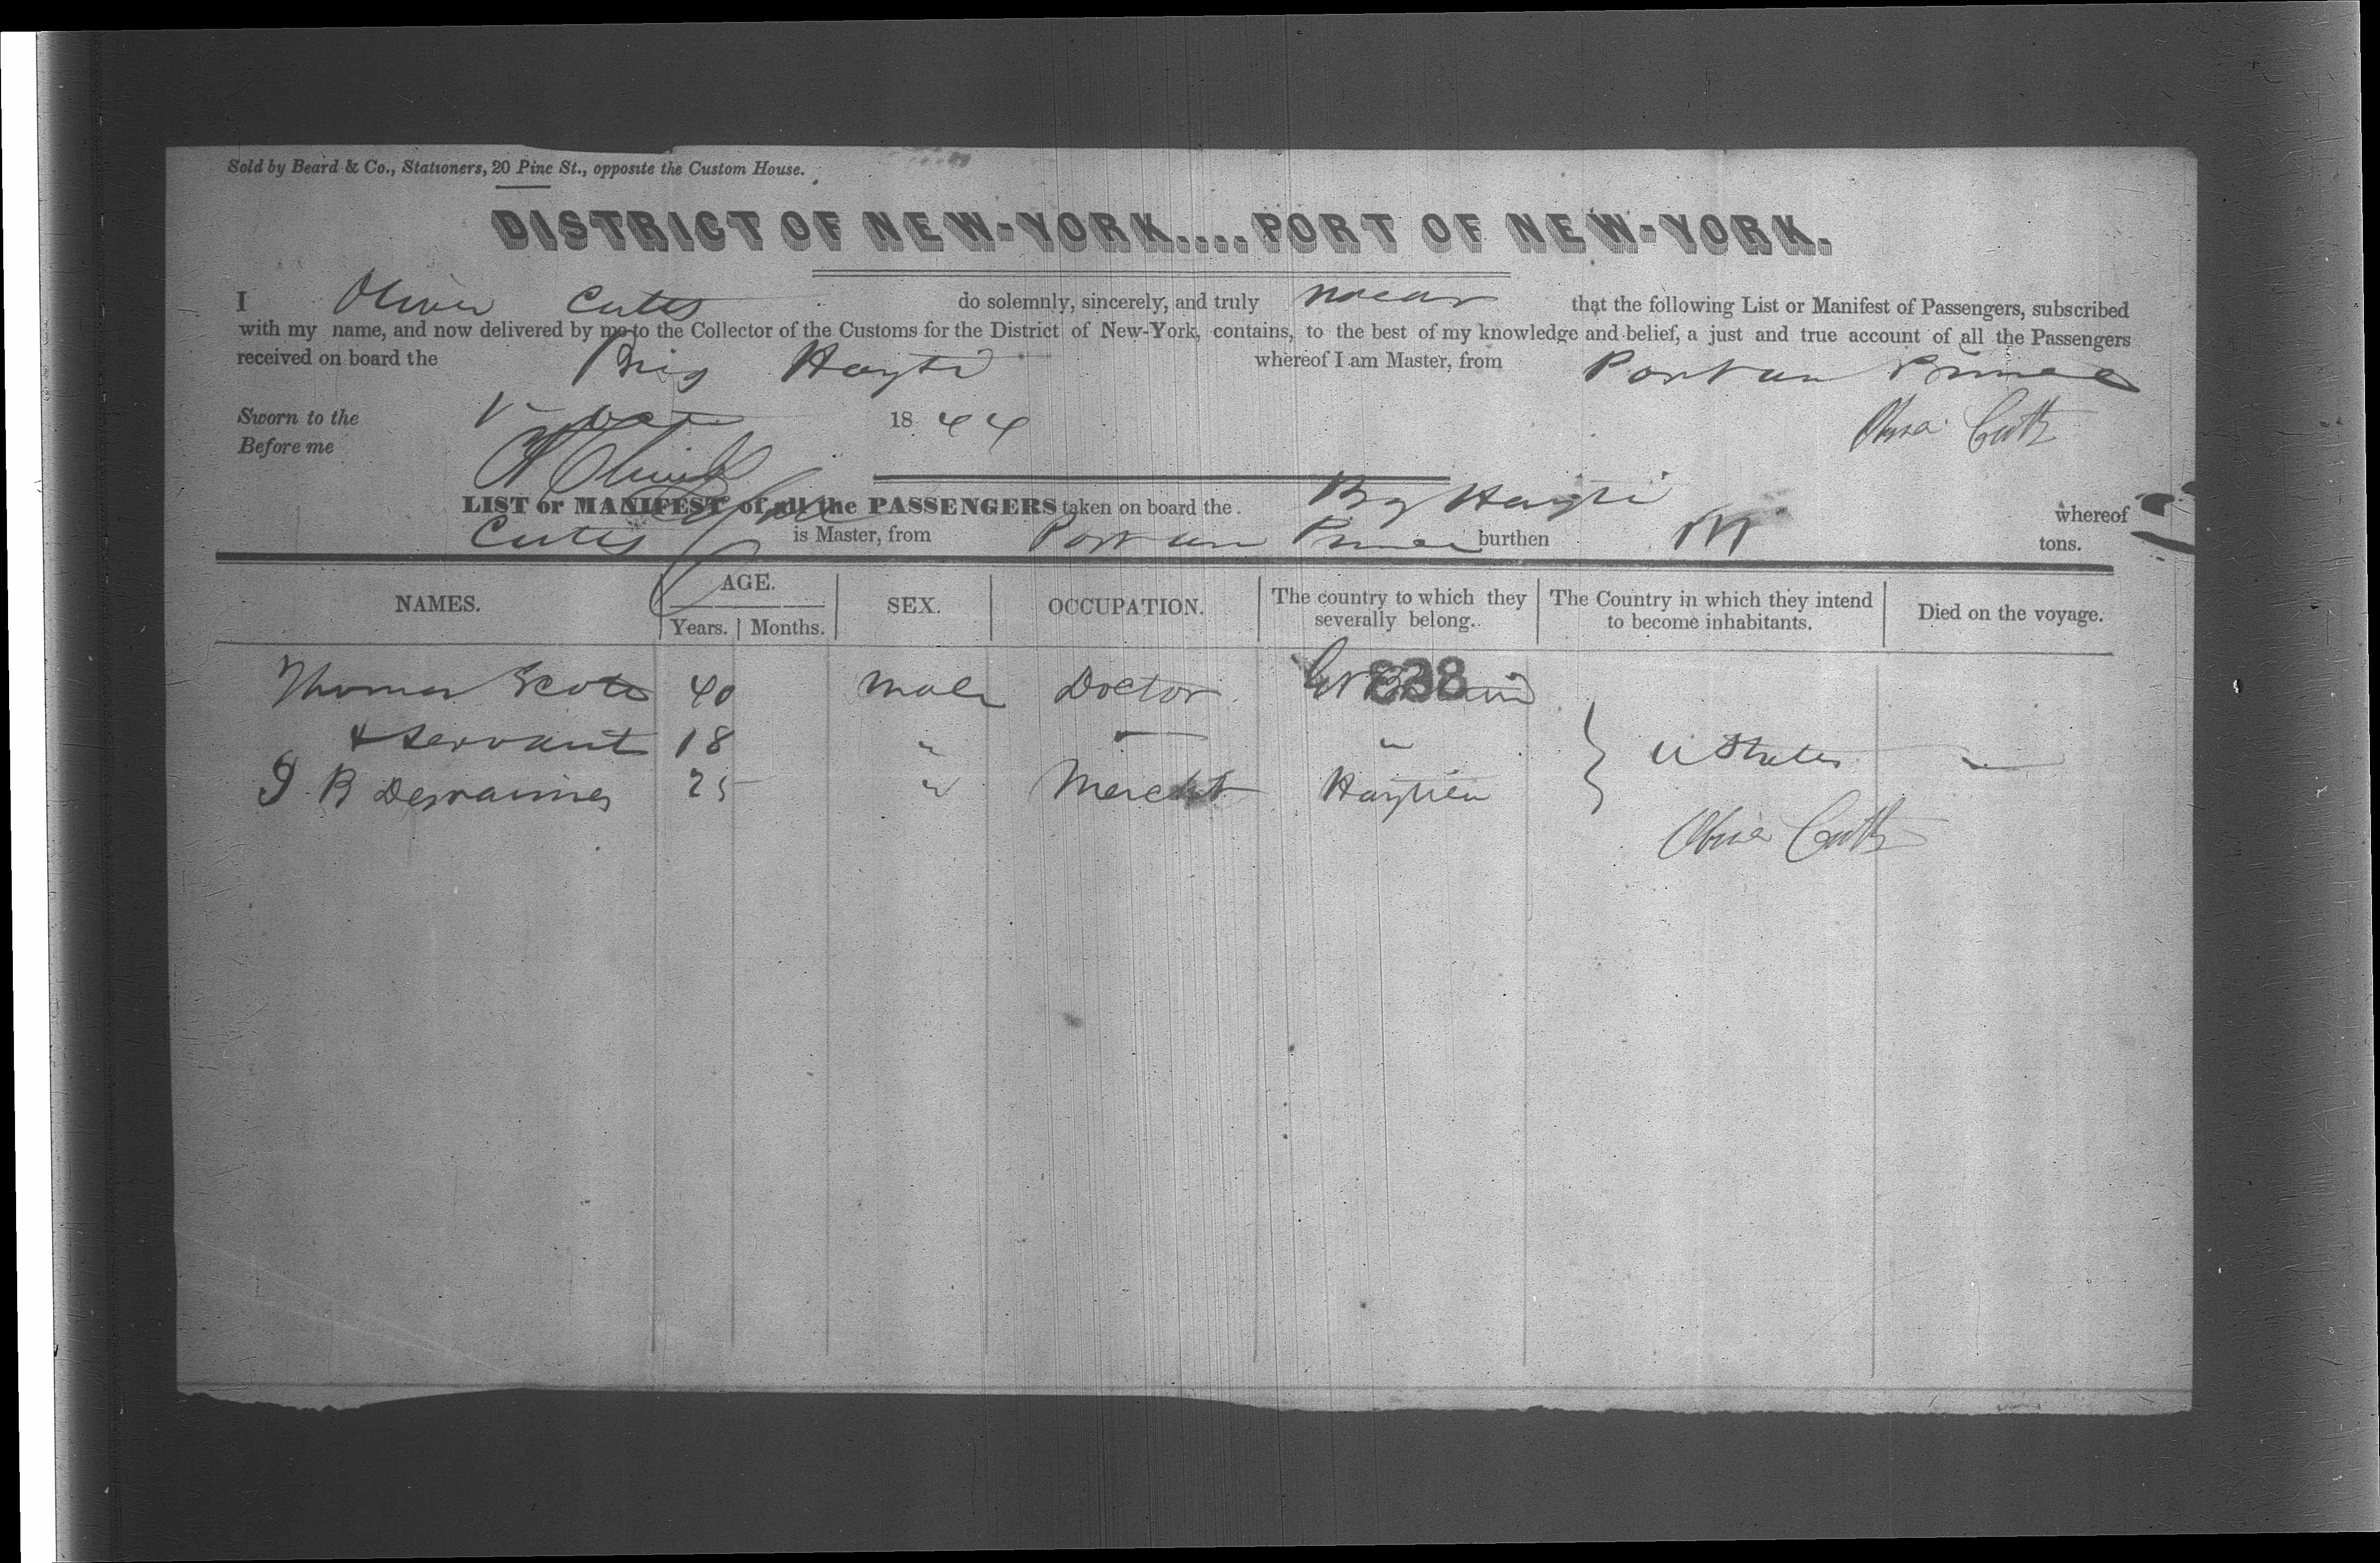 Sold by Beard & Co., Stationers, 20 Pine St., opposite the Custom House.
DISTRICT OF NEW-YORK....PORT OF NEW-YORK.
I Oliver Cutts do solemnly, sincerely, and truly swear that the following List or Manifest of Passengers, subscribed
with my name, and now delivered by me to the Collector of the Customs for the District of New-York, contains, to the best of my knowledge and belief, a just and true account of all the Passengers
received on board the Brig Hayti whereof I am Master, from Port au Prince
Sworn to the Oct 1844 Oliver Cutts
Before me
LIST or MANIFEST of all the PASSENGERS taken on board the Brg Hayti whereof
Cutts is Master, from Port au Prince burthen tons.
NAMES. AGE. Years. Months. SEX. OCCUPATION. The country to which they severally belong. The Country in which they intend to become inhabitants. Died on the voyage.
838
Thomas Scott 40 Male Doctor Gr Britain
& servant 18 " — " U States —
25 " Mercht Haytien
Oliver Cutts